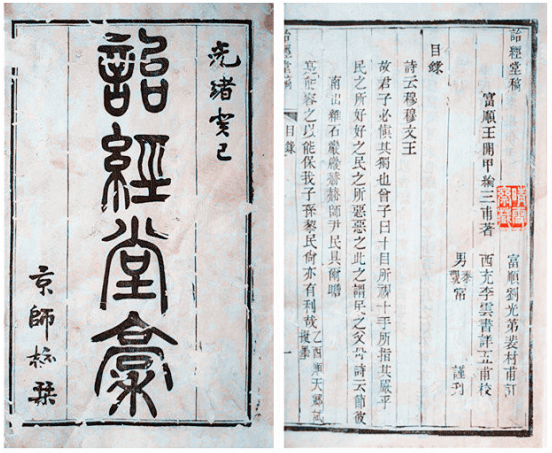 光緒癸巳
詒經堂稾
京師
詒經堂稿
富順王開甲綸三甫著
富順劉光第裴村甫訂
西充李雲書詳五甫校
男
常
謹刊
目錄
詩云穆穆文王
故君子必慎其獨也曾子曰十目所視十手所指其嚴乎
民之所好好之民之所惡惡之此之謂民之父母詩云節彼
南山維石巖巖赫赫師尹民具爾瞻
寔能容之以能保我子孫黎民尚亦有利哉 乙酉順天鄉試擬墨
詒經堂稿
目錄
一